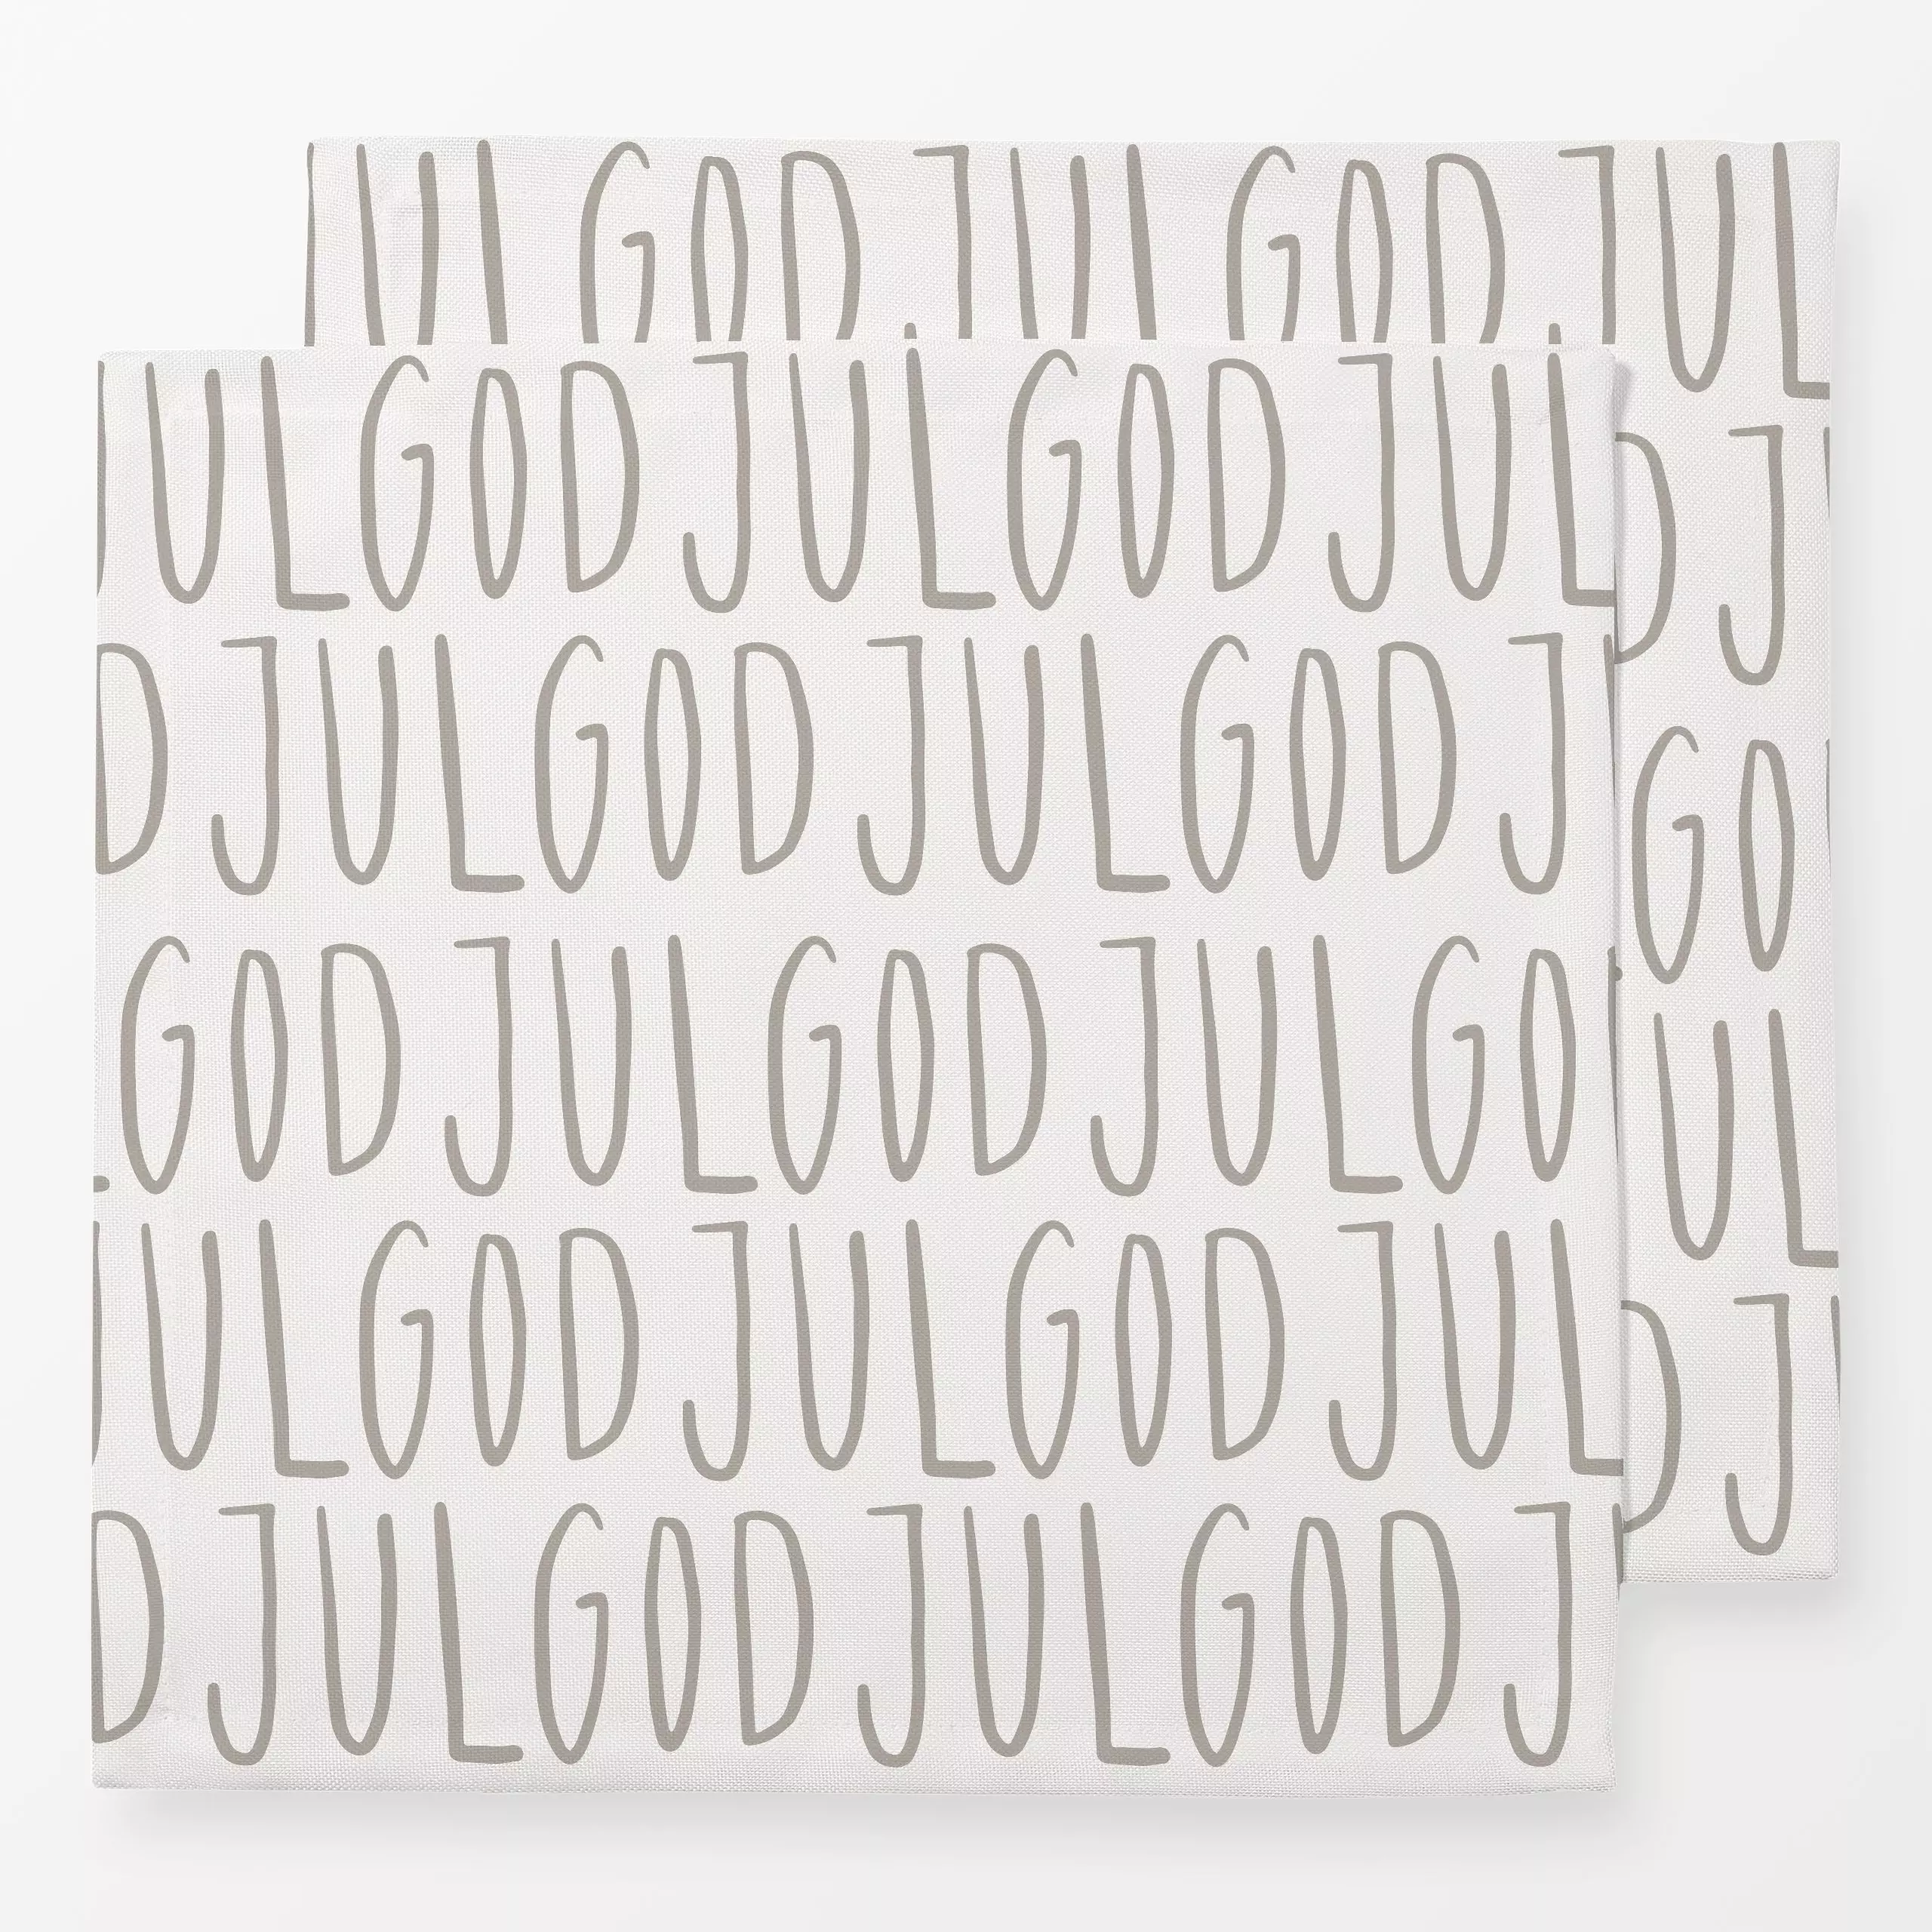 UL GOD JUL GOD JUL
JUL GOD JUL GOD JUL
D J
D JUL GOD JUL GOD J
GO
GOD JUL GOD JUL GO
UL
JUL GOD JUL GOD JUL
D J
D JUL GOD JUL GOD J